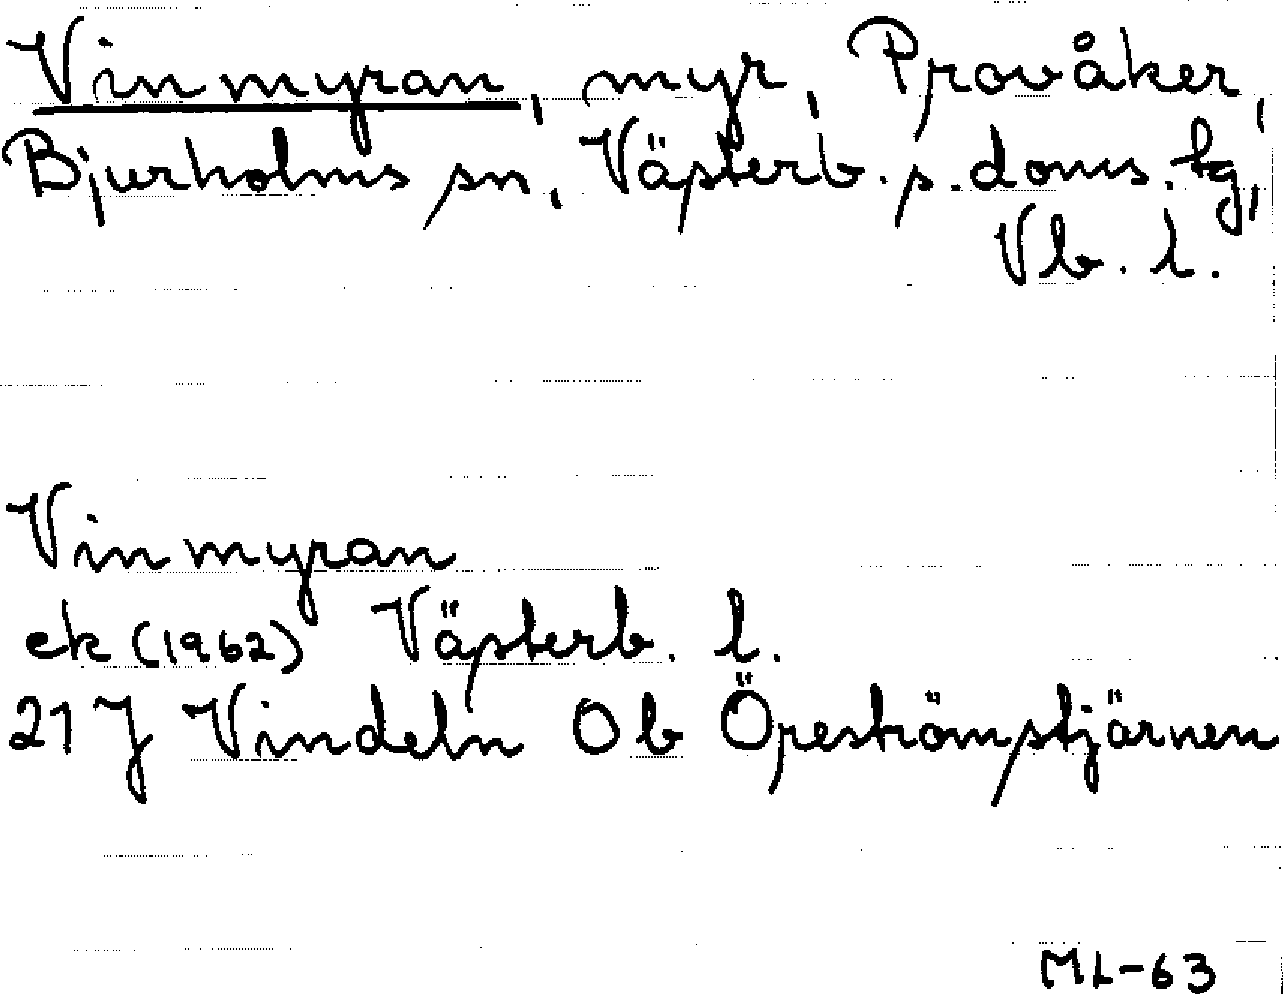 Vinmyran, myr, Provåker,
Bjurholms sn, Västerb. s. doms. tg,
Vb. l.
Vinmyran
ek (1962) Västerb. l.
21 J Vindeln Ob Öreströmstjärnen
ML-63